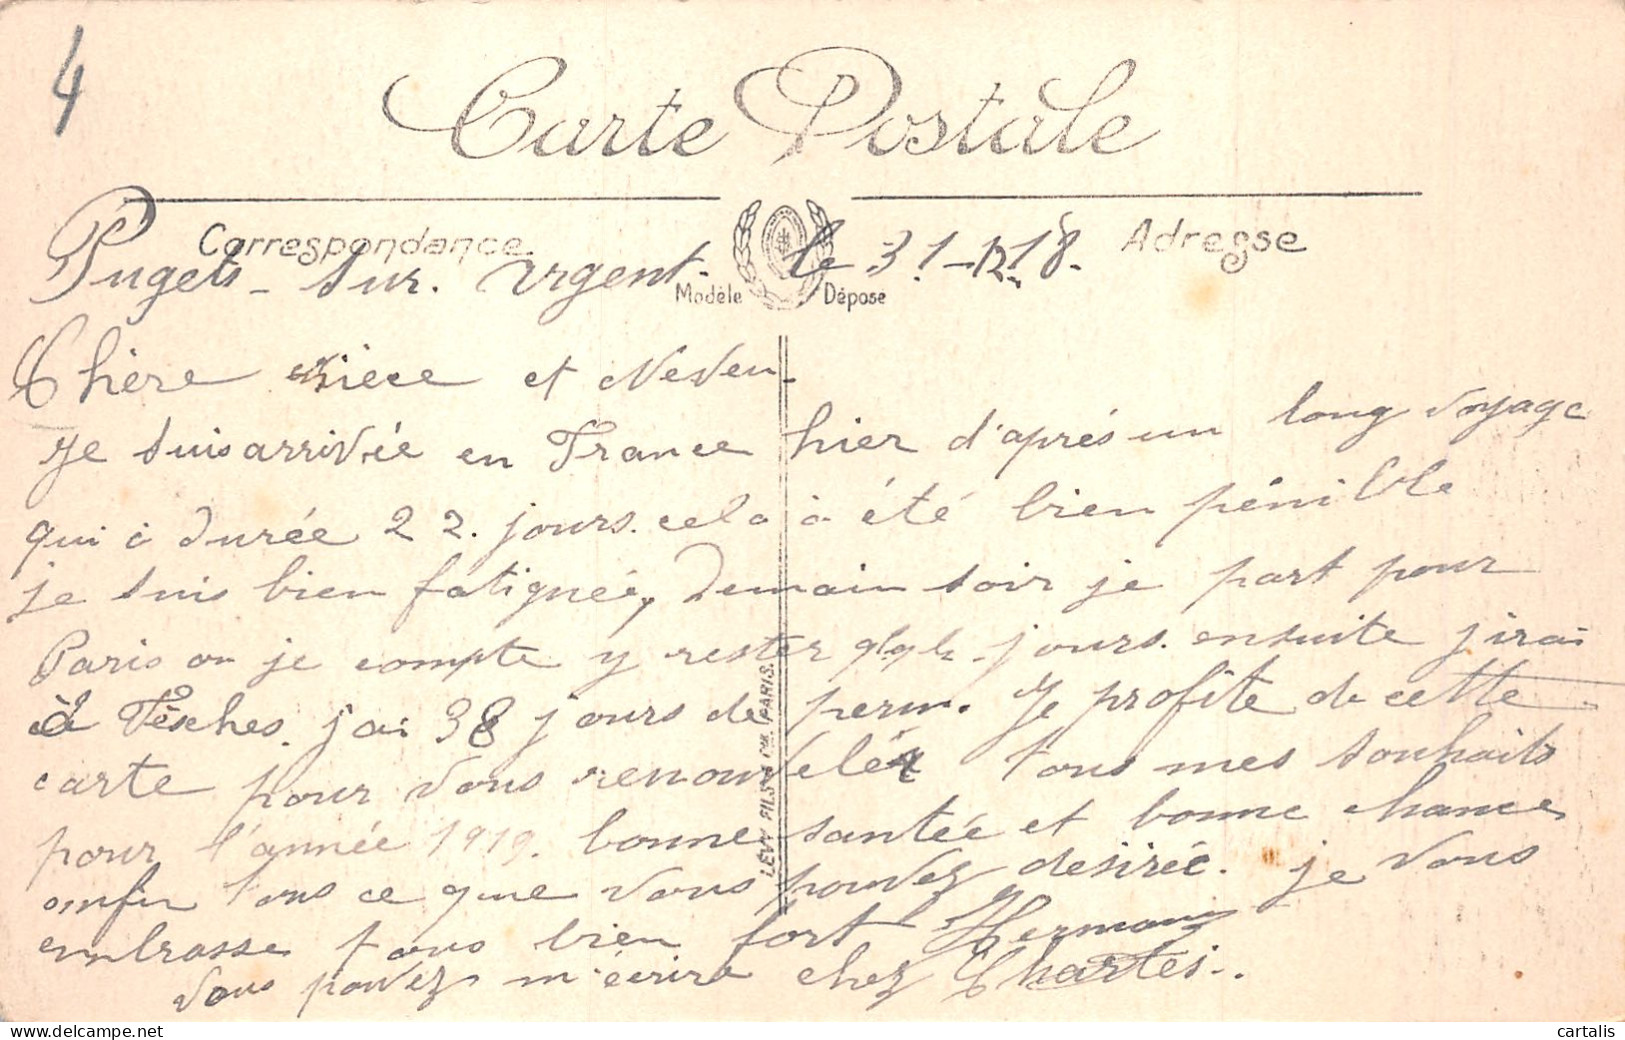 4
Carte Postale
Correspondance
Adresse
Pugets-sur. Argent. le 31-12-18.
Modèle Déposé
Chère nièce et Neveu
Je suis arrivée en France hier d'après un long voyage
qui à durée 22. jours. cela à été bien pénible
je suis bien fatignée, Demain soir je part pour
Paris ou je compte y rester qlqk. jours. ensuite j irai
à Fêsches. j'ai 38 jours de perm. Je profite de cette
carte pour vous renouveler tous mes souhaits
pour l'année 1919. bonne santée et bonne chance
enfin tous ce que vous pouvez desirée. je vous
embrasse tous bien fort Hermann
Vous pouvez m'écrire chez Chartes..
LÉVY FILS & Cie. PARIS.
cartalis